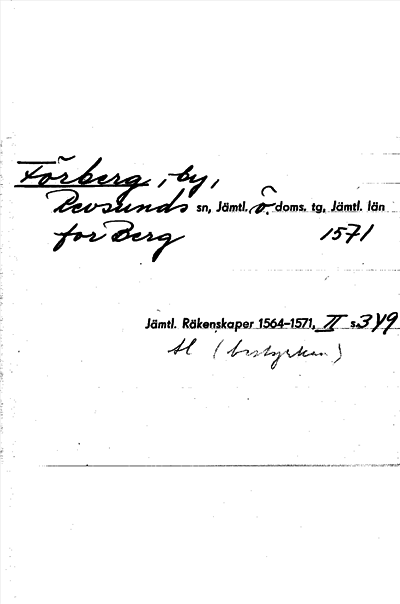 Förberg, by,
Revsunds sn, Jämtl. ö. doms. tg, Jämtl. län
for Berg 1571
Jämtl. Räkenskaper 1564-1571, II s. 349